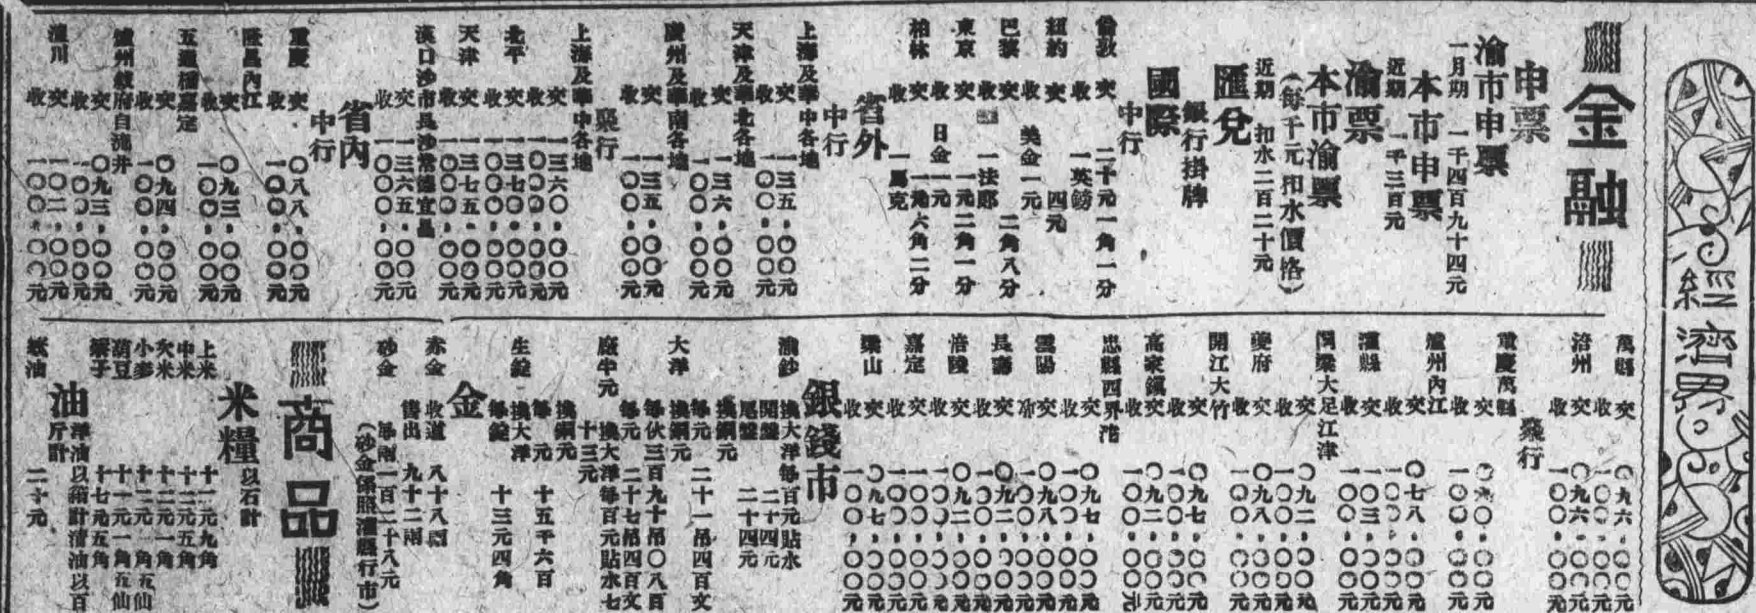 經濟界
金融
申票
渝市申票
一月期 一千四百九十四元
本市申票
近期 一千三百元
渝票
本市渝票
(每千元扣水價格)
近期 扣水二百二十元
匯兌
銀行掛牌
國際
中行
倫敦 交 二十元一角一分
收 一英鎊
紐約 交 四元
收 美金一元
巴黎 交 二角八分
收 一法郎
東京 交 一元二角一分
收 日金一元
柏林 交 一元六角二分
收 一馬克
省外
中行
上海及華中各地
交 一三五.〇〇元
收 一〇〇.〇〇元
天津及華北各地
交 一三六.〇〇元
收 一〇〇.〇〇元
廣州及華南各地
交 一三五.〇〇元
收 一〇〇.〇〇元
聚行
上海及華中各地
交 一三六〇.〇〇元
收 一〇〇〇.〇〇元
北平 交 一三七〇.〇〇元
收 一〇〇〇.〇〇元
天津 交 一三七五.〇〇元
收 一〇〇〇.〇〇元
漢口沙市長沙常德宜昌
交 一三六五.〇〇元
收 一〇〇〇.〇〇元
省內
中行
重慶 交 〇八八.〇〇元
收 一〇〇.〇〇元
隆昌內江
交 〇九三.〇〇元
收 一〇〇.〇〇元
五通橋嘉定
交 〇九四.〇〇元
收 一〇〇.〇〇元
瀘州敘府自流井
交 〇九三.〇〇元
收 一〇〇.〇〇元
潼川 交 一〇二.〇〇元
收 一〇〇.〇〇元
萬縣 交 〇九六.〇〇元
收 一〇〇.〇〇元
涪州 交 〇九六.〇〇元
收 一〇〇.〇〇元
聚行
重慶萬縣
交
收 一〇〇.〇〇元
瀘州內江
交 〇七八.〇〇元
收 一〇〇.〇〇元
瀘縣 交 一〇三.〇〇元
收 一〇〇.〇〇元
銅梁大足江津
交 〇九二.〇〇元
收 一〇〇.〇〇元
夔府 交 〇九八.〇〇元
收 一〇〇.〇〇元
開江大竹
交 〇九七.〇〇元
收 一〇〇.〇〇元
高家鎮 交 〇九二.〇〇元
收 一〇〇.〇〇元
忠縣西界沱
交 〇九七.〇〇元
收 一〇〇.〇〇元
雲陽 交 〇九八.〇〇元
收 一〇〇.〇〇元
長壽 交 〇九二.〇〇元
收 一〇〇.〇〇元
涪陵 交 〇九二.〇〇元
收 一〇〇.〇〇元
嘉定 交
收 一〇〇.〇〇元
梁山 交 〇九七.〇〇元
收 一〇〇.〇〇元
銀錢市
渝鈔 換大洋每百元貼水
開盤 二十四元
尾盤 二十四元
大洋 換銅元
每元 二十一吊四百文
換銅元
每伙三百九十吊〇八百
每元 二十七吊四百文
廠半元 換大洋每百元貼水七
十三元
換銅元
每元 十五千六百
生錠 換大洋
每錠 十三元四角
金
赤金 收進 八十八兩
售出 九十二兩
砂金 每兩一百二十八元
(砂金係照潼縣行市)
商品
米糧 以石計
上米 十二元九角
中米 十二元五角
火米 十二元一角
小麥 十二元一角五仙
葫豆 十一元一角五仙
十七元五角
油 洋油以箱計清油以百
斤計
二十元